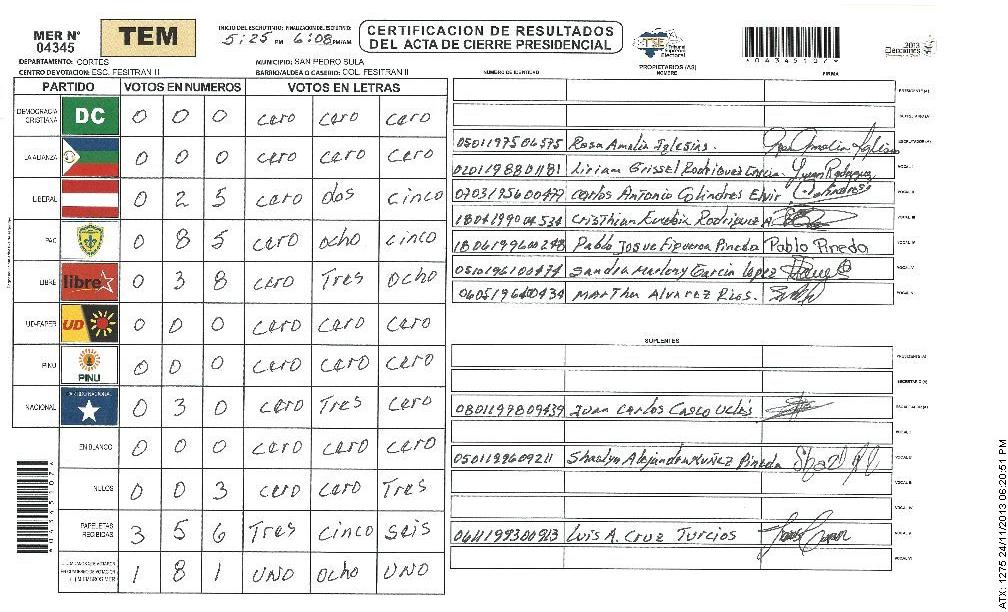 MER Nº
04345
TEM
INICIO DEL ESCRUTINIO: FINALIZACION DEL ESCRUTINIO:
5:25 PM 6:08 PM/AM
CERTIFICACION DE RESULTADOS
DEL ACTA DE CIERRE PRESIDENCIAL
TSE Tribunal Supremo Electoral
*04345107*
2013 Elecciones
DEPARTAMENTO: CORTES
MUNICIPIO: SAN PEDRO SULA
CENTRO DE VOTACION: ESC. FESITRAN II
BARRIO/ALDEA O CASERIO: COL. FESITRAN II
PARTIDO VOTOS EN NUMEROS VOTOS EN LETRAS
DEMOCRACIA CRISTIANA DC 0 0 0 cero cero cero
LA ALIANZA 0 0 0 cero cero cero
LIBERAL 0 2 5 cero dos cinco
PAC 0 8 5 cero ocho cinco
LIBRE libre 0 3 8 cero Tres ocho
UD-FAPER UD 0 0 0 cero cero cero
PINU PINU 0 0 0 cero cero cero
NACIONAL PARTIDO NACIONAL 0 3 0 cero Tres cero
EN BLANCO 0 0 0 cero cero cero
NULOS 0 0 3 cero cero Tres
PAPELETAS RECIBIDAS 3 5 6 Tres cinco seis
1 8 1 uno ocho uno
PROPIETARIOS (AS)
NUMERO DE IDENTIDAD NOMBRE FIRMA
PRESIDENTE (A)
SECRETARIO (A)
0501197504575 Rosa Amelia Iglesias. ESCRUTADOR (A)
0201198801181 Liriam Grissel Rodriguez Garcia VOCAL I
0703195600477 Carlos Antonio Colindres Elvir VOCAL II
1804199004534 Cristhian Eusebio Rodriguez A. VOCAL III
1806199600248 Pablo Josue Figueroa Pineda Pablo Pineda VOCAL IV
0510196100474 Sandra Marleny Garcia Lopez VOCAL V
0605196400434 Martha Alvarez Rios. VOCAL VI
SUPLENTES
PRESIDENTE (A)
SECRETARIO (A)
0801199809439 Juan Carlos Casco Veles ESCRUTADOR (A)
VOCAL I
0501199609211 Shaslyn Alejandra Nuñez Pineda VOCAL II
VOCAL III
VOCAL IV
0611199300913 Luis A. Cruz Turcios VOCAL V
VOCAL VI
ATX: 1275 24/11/2013 06:20:51 PM